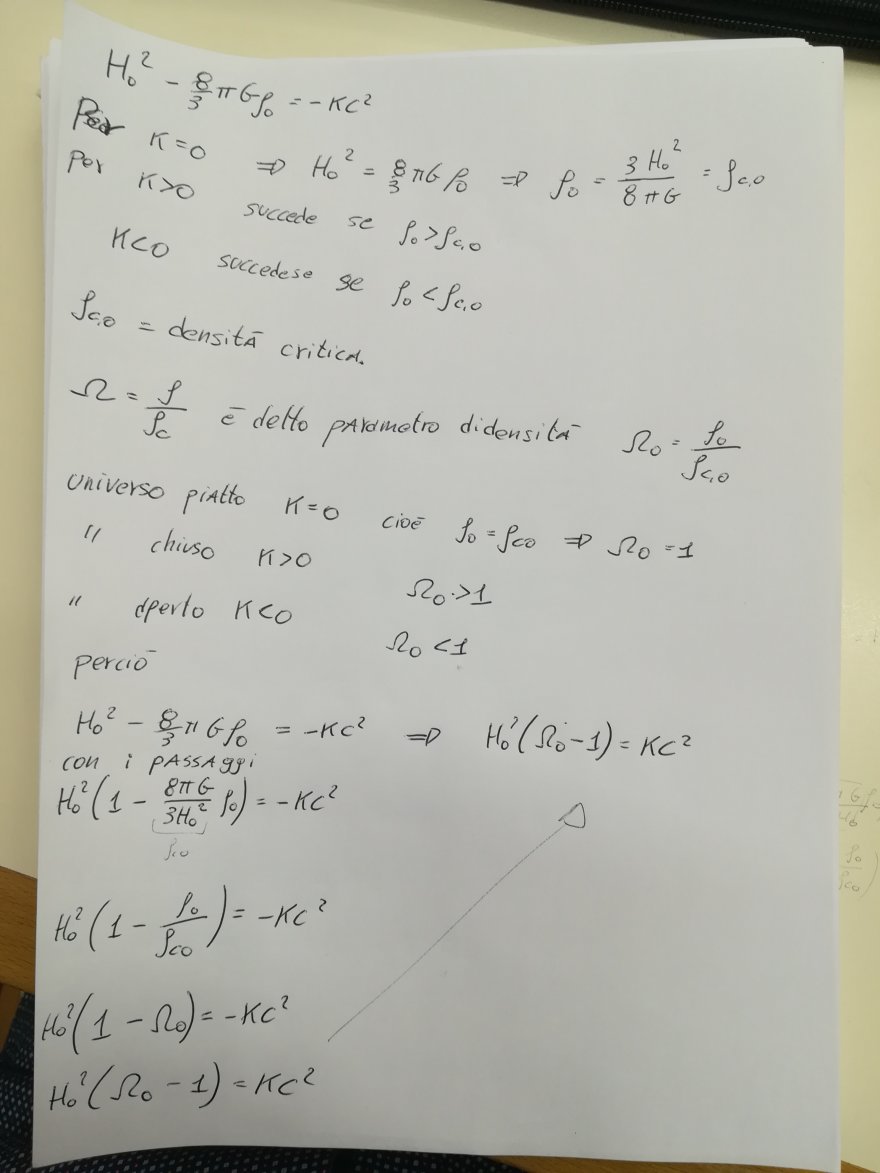 H₀² - 8/3 π G ρ₀ = - KC²
Per K=0 ⇒ H₀² = 8/3 π G ρ₀ ⇒ ρ₀ = 3 H₀² / 8 π G = ρc,0
Per K>0 succede se ρ₀ > ρc,0
K<0 succedese se ρ₀ < ρc,0
ρc,0 = densitā critica.
Ω = ρ/ρc ē detto parametro didensitā Ω₀ = ρ₀/ρc,0
Universo piatto K=0 cioē ρ₀ = ρc0 ⇒ Ω₀ = 1
" chiuso K>0 Ω₀ > 1
" aperto K<0 Ω₀ < 1
perciō
H₀² - 8/3 π G ρ₀ = -KC² ⇒ H₀²(Ω₀ - 1) = KC²
con i passaggi
H₀²(1 - 8πG/3H₀² ρ₀) = -KC²
ρc0
H₀²(1 - ρ₀/ρc0) = -KC²
H₀²(1 - Ω₀) = -KC²
H₀²(Ω₀ - 1) = KC²